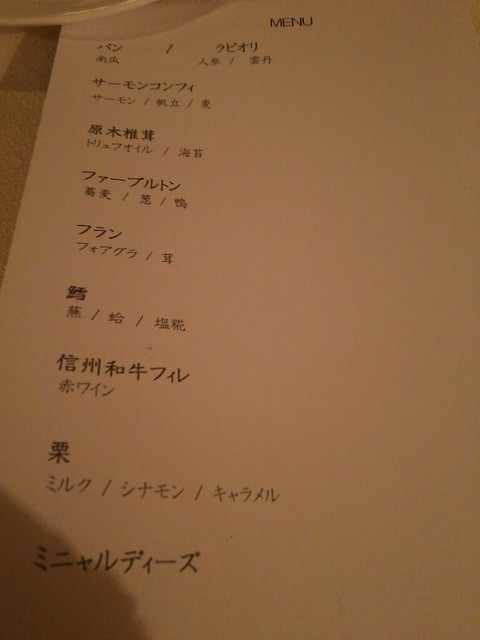 MENU
パン / ラビオリ
南瓜 人参 / 雲丹
サーモンコンフィ
サーモン / 帆立 / 麦
原木椎茸
トリュフオイル / 海苔
ファーブルトン
蕎麦 / 葱 / 鴨
フラン
フォアグラ / 茸
鱈
蕪 / 蛤 / 塩糀
信州和牛フィレ
赤ワイン
栗
ミルク / シナモン / キャラメル
ミニャルディーズ